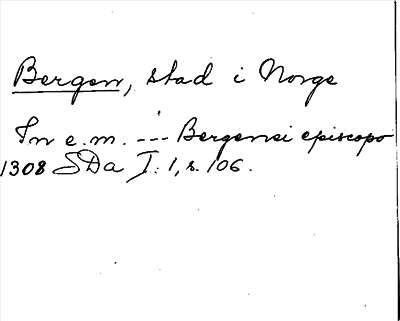 Bergen, stad i Norge
In e.m. --- Bergensi episcopo
1308 SDa I: 1, s. 106.